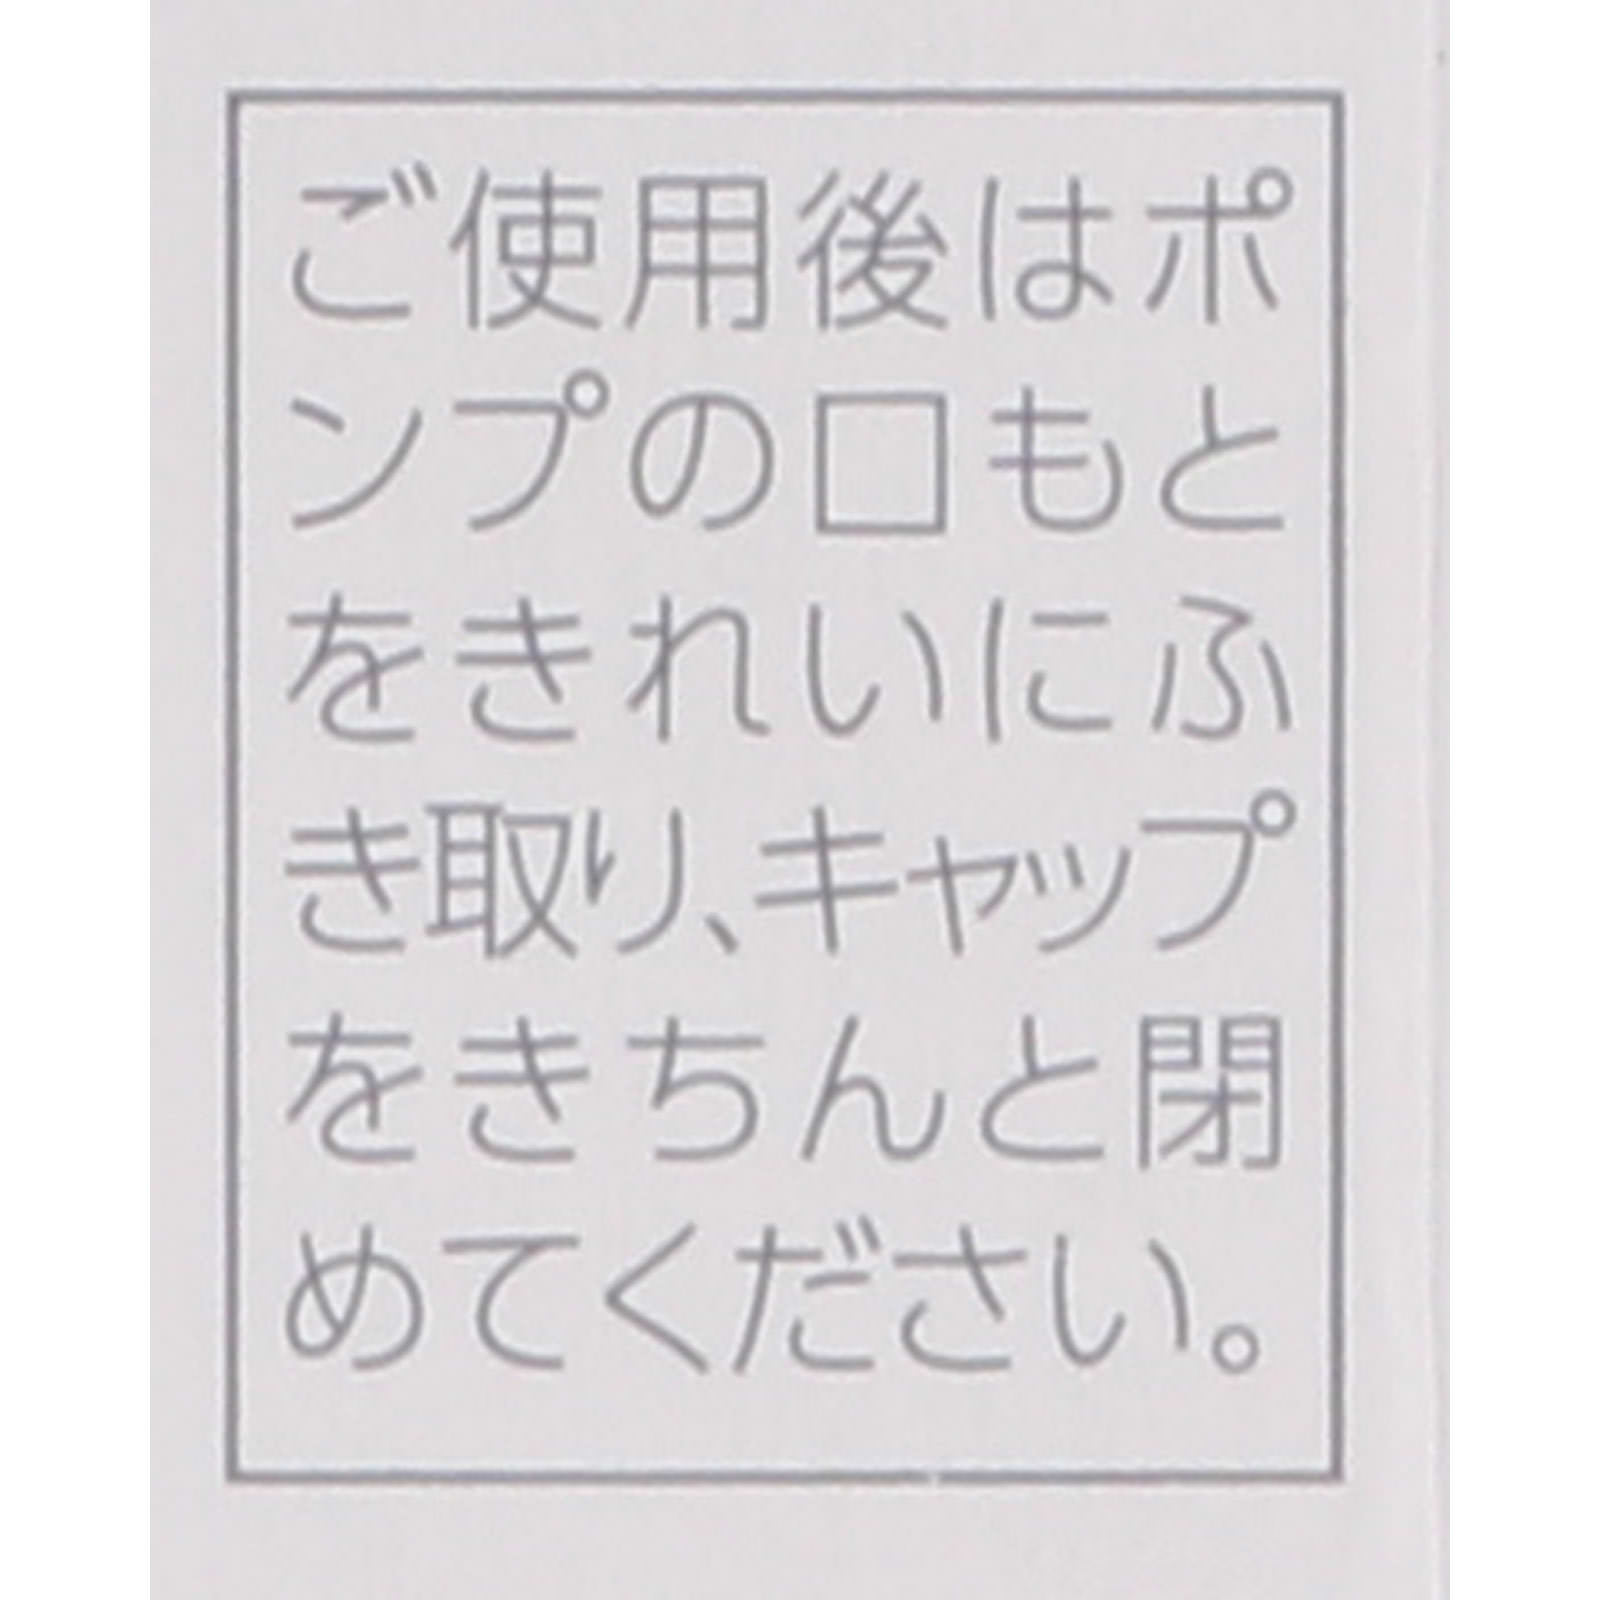 ご使用後はポ
ンプの口もと
をきれいにふ
き取り、キャップ
をきちんと閉
めてください。